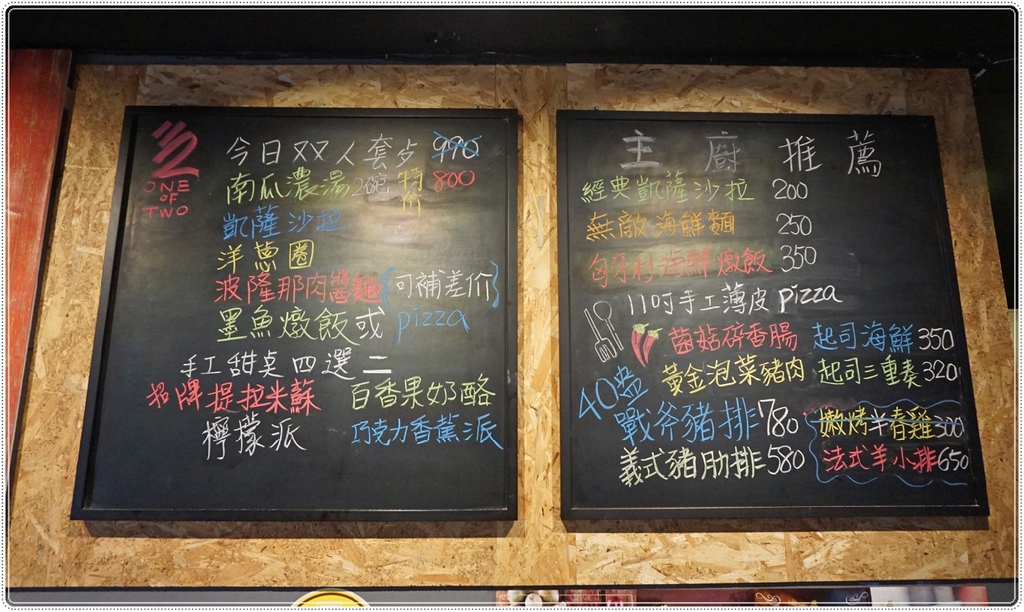 ONE
OF
TWO
今日双人套歺 990
南瓜濃湯2碗 特价 800
凱薩沙拉
洋蔥圈
波隆那肉醬麵(可補差价)
墨魚燉飯或 pizza
手工甜桌四選二
招牌提拉米蘇 百香果奶酪
檸檬派 巧克力香蕉派
主廚推薦
經典凱薩沙拉 200
無敵海鮮麵 250
匈牙利海鮮燉飯 350
11吋手工薄皮 pizza
菌菇碎香腸 起司海鮮 350
黃金泡菜豬肉 起司三重奏 320
40盎
戰斧豬排 780 嫩烤半春雞 300
義式豬肋排 580 法式羊小排 650